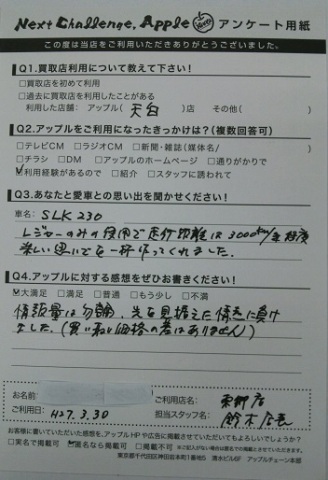 Next Challenge, Apple アンケート用紙
この度は当店をご利用いただきありがとうございました。
Q1.買取店利用について教えて下さい!
□買取店を初めて利用
□過去に買取店を利用したことがある
利用した店舗: アップル( 天白 )店 その他( )
Q2.アップルをご利用になったきっかけは?(複数回答可)
□テレビCM □ラジオCM □新聞・雑誌(媒体名/ )
□チラシ □DM □アップルのホームページ □通りがかりで
☑利用経験があるので □紹介 □スタッフに誘われて
Q3.あなたと愛車との思い出を聞かせてください!
車名: SLK 230
レジャーのみの使用で走行距離は3000km/年程度
楽しい思いでを一杯作ってくれました。
Q4.アップルに対する感想をぜひお書きください!
☑大満足 □満足 □普通 □もう少し □不満
情報量は勿論、先を見据えた情熱に負け
ました。(買い取り価格の差はありません)
お名前:
ご利用店名: 東郷店
ご利用日: H27.3.30
担当スタッフ名: 鈴木
お客様に書いていただいた感想を、アップルHPや広告に掲載させていただいてもよろしいでしょうか?
□実名で掲載可 ☑匿名なら掲載可 □掲載不可
東京都千代田区神田岩本町1番地5 清水ビル6F アップルチェーン本部